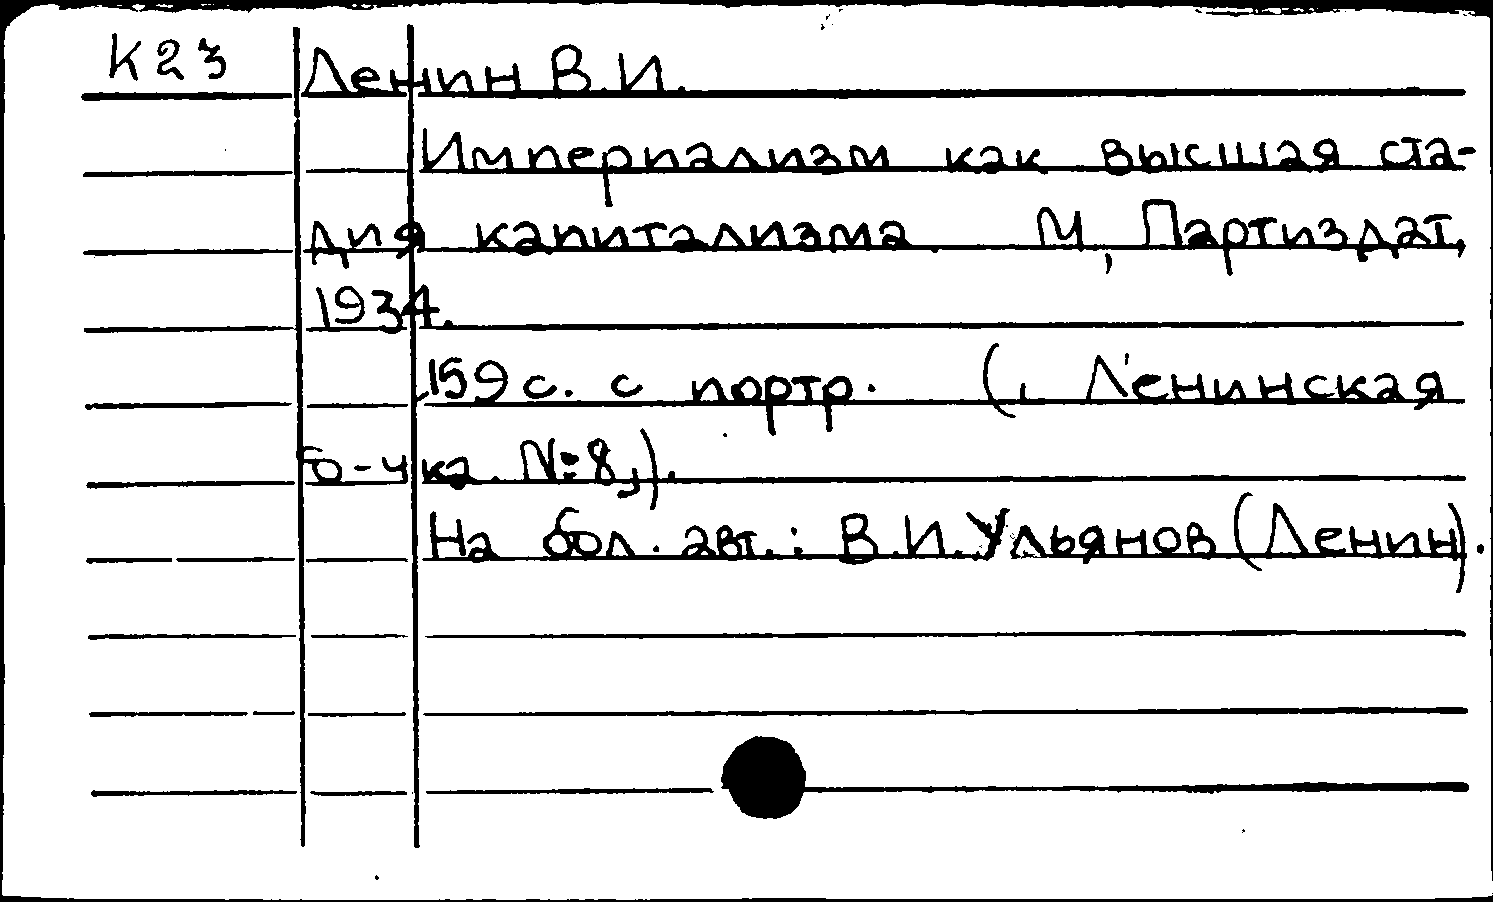 К23 Ленин В.И.
Империализм как высшая ста-
дия капитализма. М, Партиздат,
1934.
159 с. с портр. (, Ленинская
б-чка. №8,).
На бол. авт.: В.И.Ульянов (Ленин).